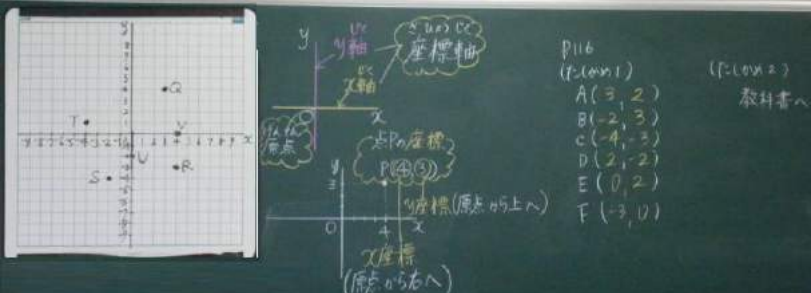 y
Q
T
V
x
U
R
S
y
じく
y軸
ざひょうじく
座標軸
じく
x軸
O
x
げんてん
原点
点Pの座標
P(④,③)
y
3
y座標(原点から上へ)
O
4
x
x座標
(原点から右へ)
P116
(たしかめ1)
A(3, 2)
B(-2, 3)
C(-4, -3)
D(2, -2)
E(0, 2)
F(-3, 0)
(たしかめ2)
教科書へ